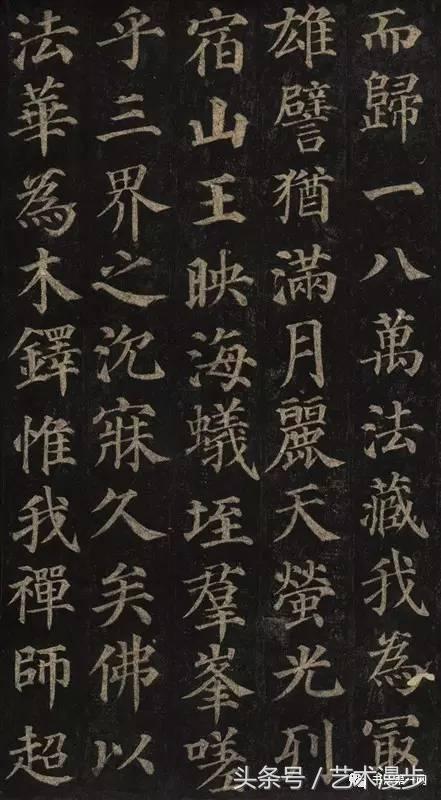 而歸一八萬法藏我為冣
雄譬猶滿月麗天螢光列
宿山王映海蟻垤羣峯嗟
乎三界之沉寐久矣佛以
法華為木鐸惟我禪師超
头条号／艺术漫步